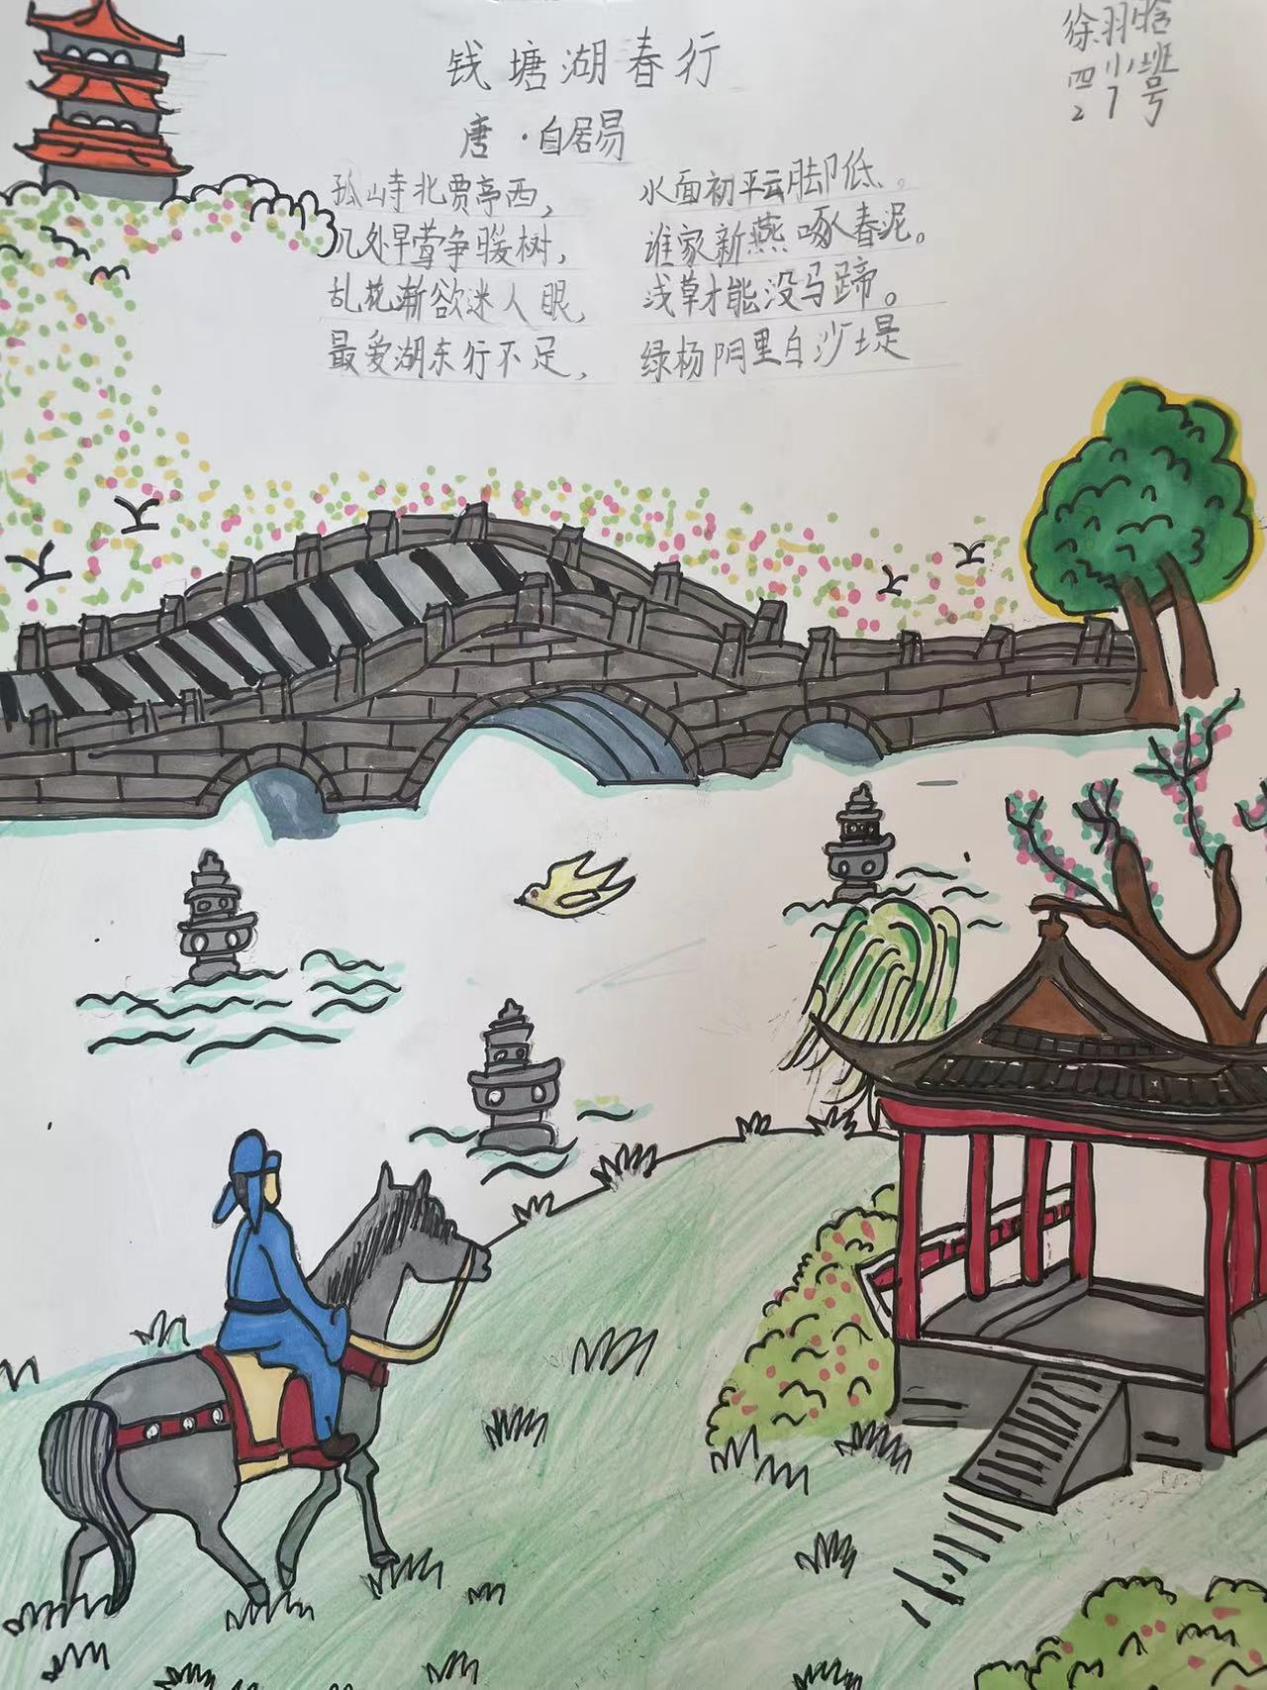 钱塘湖春行
唐·白居易
孤山寺北贾亭西，水面初平云脚低。
几处早莺争暖树，谁家新燕啄春泥。
乱花渐欲迷人眼，浅草才能没马蹄。
最爱湖东行不足，绿杨阴里白沙堤
徐羽晗
四小班
21号